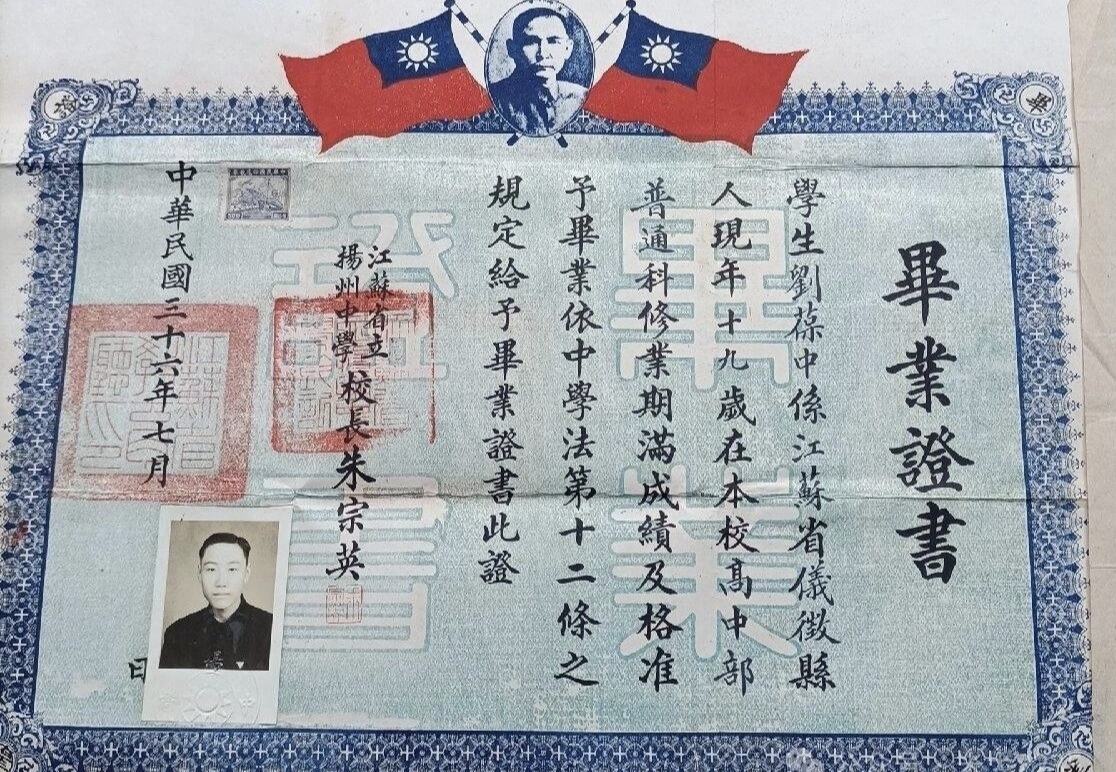 畢業證書
學生劉葆中係江蘇省儀徵縣
人現年十九歲在本校高中部
普通科修業期滿成績及格准
予畢業依中學法第十二條之
規定給予畢業證書此證
江蘇省立
揚州中學校長朱宗英
中華民國三十六年七月
日
畢業
證書